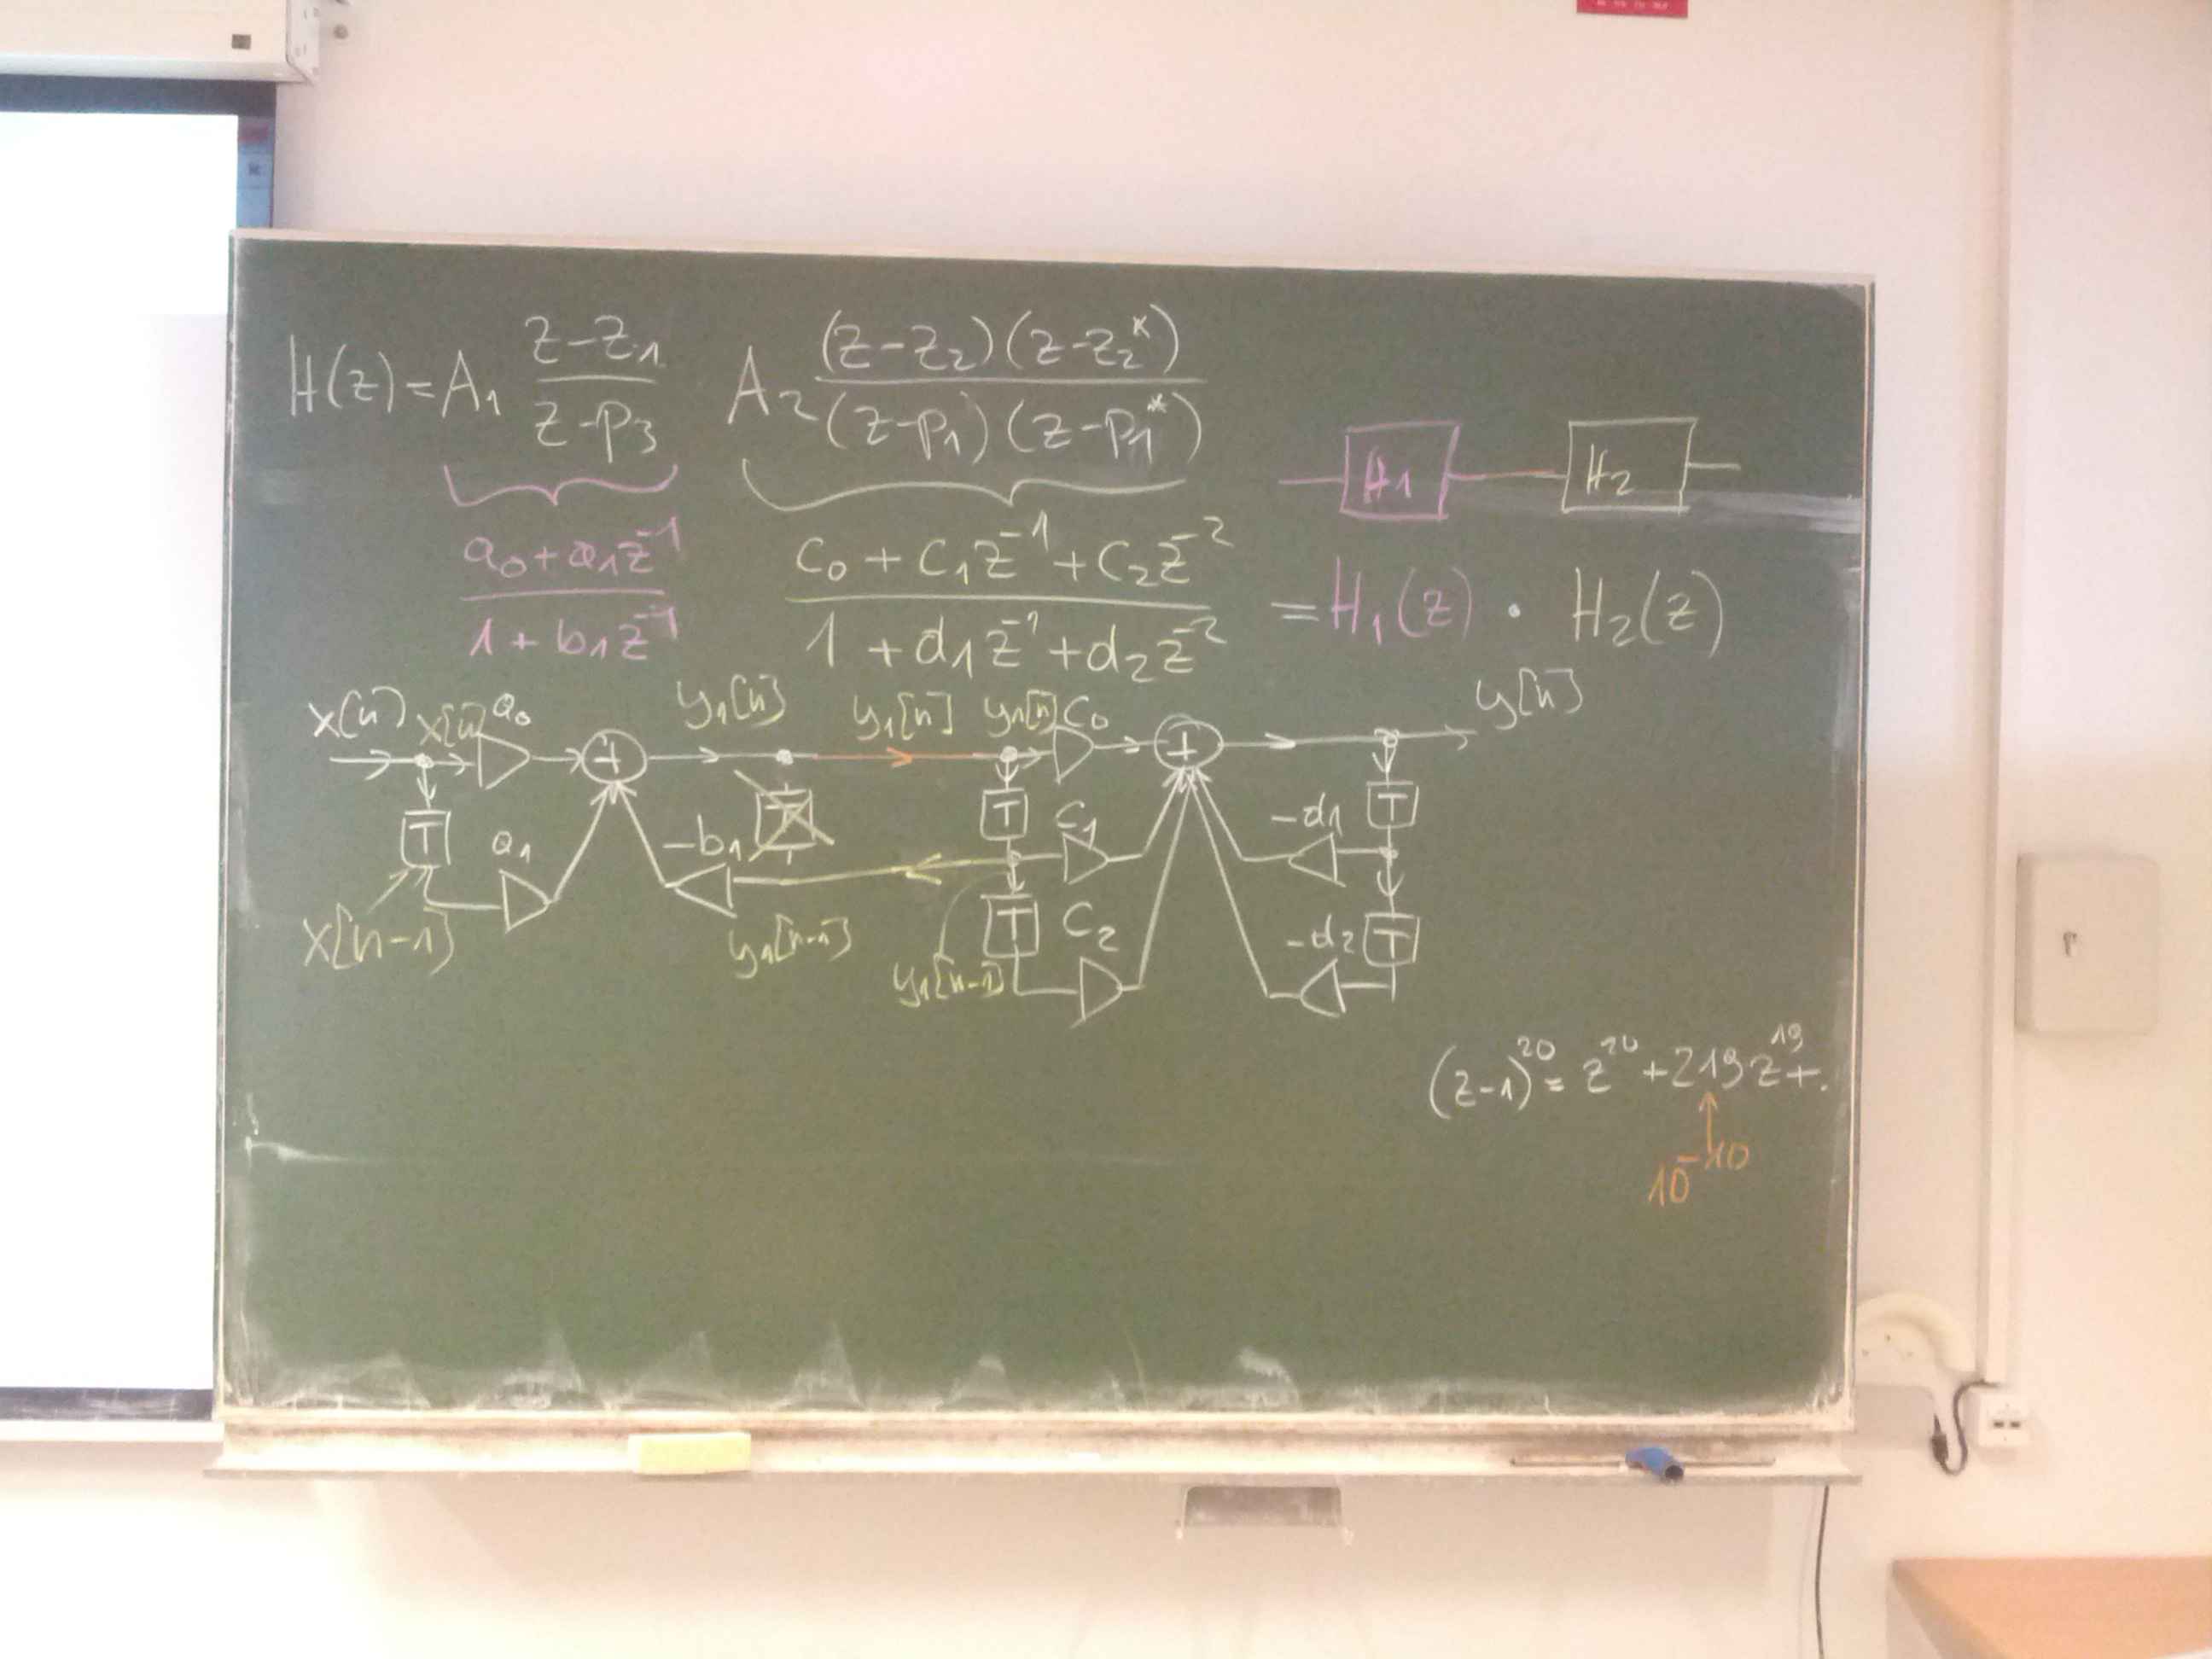 H(z) = A₁ (z-z₁)/(z-p₃) A₂ ((z-z₂)(z-z₂*))/((z-p₁)(z-p₁*))
H₁ H₂
(a₀+a₁z⁻¹)/(1+b₁z⁻¹) (c₀+c₁z⁻¹+c₂z⁻²)/(1+d₁z⁻¹+d₂z⁻²) = H₁(z) · H₂(z)
x[n] x[n] a₀ + y₁[n] y₁[n] y₁[n] c₀ + y[n]
T a₁ -b₁ T T c₁ -d₁ T
x[n-1] y₁[n-1] y₁[n-1] T c₂ -d₂ T
(z-1)²⁰ = z²⁰ + 219z¹⁹ + .
10⁻¹⁰